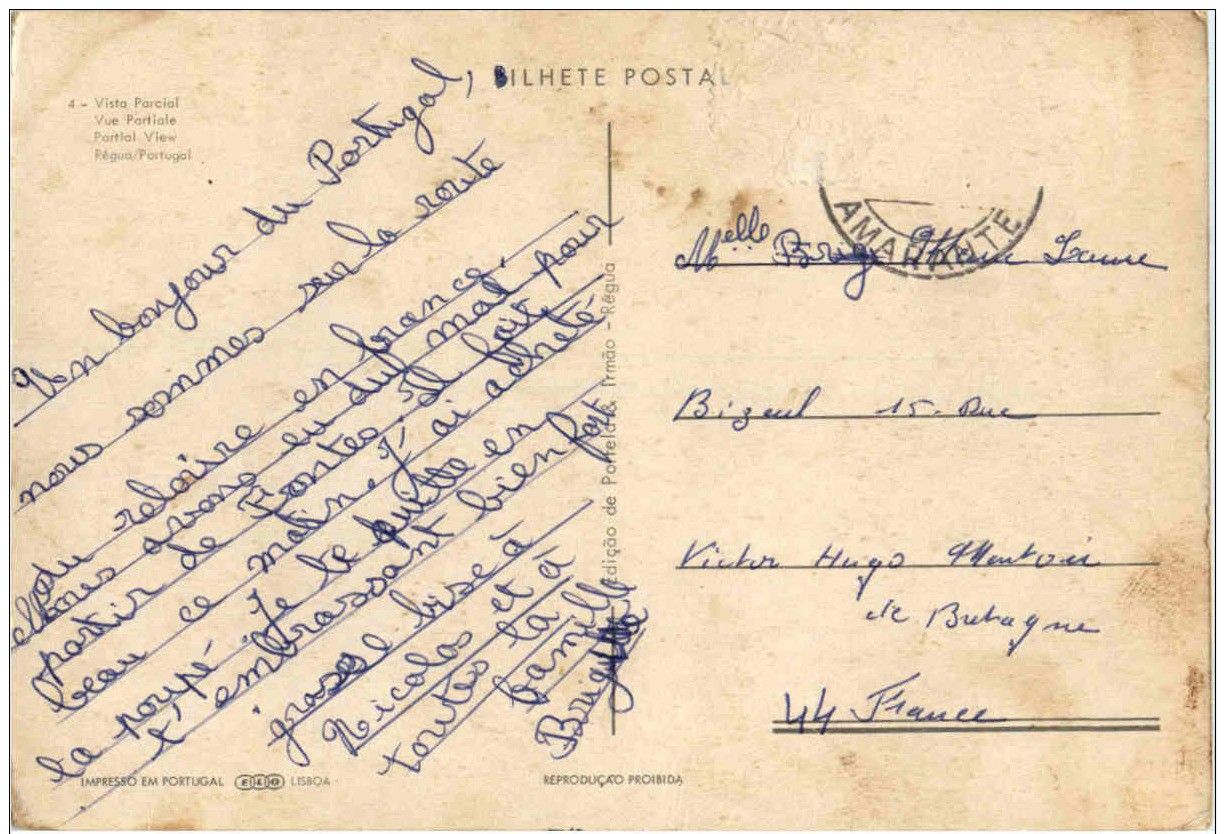 BILHETE POSTAL
4 - Vista Parcial
Vue Partiale
Partial View
Régua/Portugal
Un bonjour du Portugal,
nous sommes sur la route
du retoire en france.
Nous avons eu du mal pour
partir de Fontes, Il fait
beau ce matin. J'ai acheté
la poupé. Je te quitte en
t'embrassant bien fort
grosse bise à
Nicolas et à
toutes ta
famille
Brigitte
Edição de Portela & Irmão - Régua
AMARANTE
Melle Marie Jeanne
Bizeul 15. Rue
Victor Hugo Montoir
de Bretagne
44 France
IMPRESSO EM PORTUGAL ELO LISBOA
REPRODUÇÃO PROIBIDA